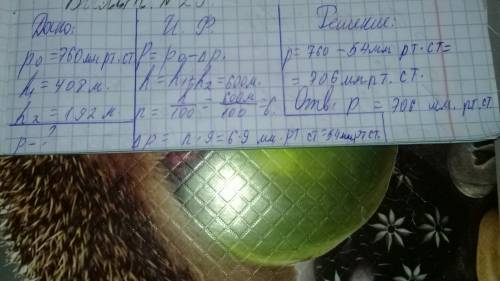 Дано:
p₀=760мм.рт.ст
h₁=408м.
h₂=192м
p-?
И. Ф
P=p₀-Δp.
h=h₁+h₂=600м.
n=h/100=600м/100=6.
Δp= n·9=6·9 мм. рт ст=54мм.рт.ст.
Решение:
p=760-54мм рт.ст=
=706мм.рт. ст.
Отв: p = 706 мм. рт.ст.